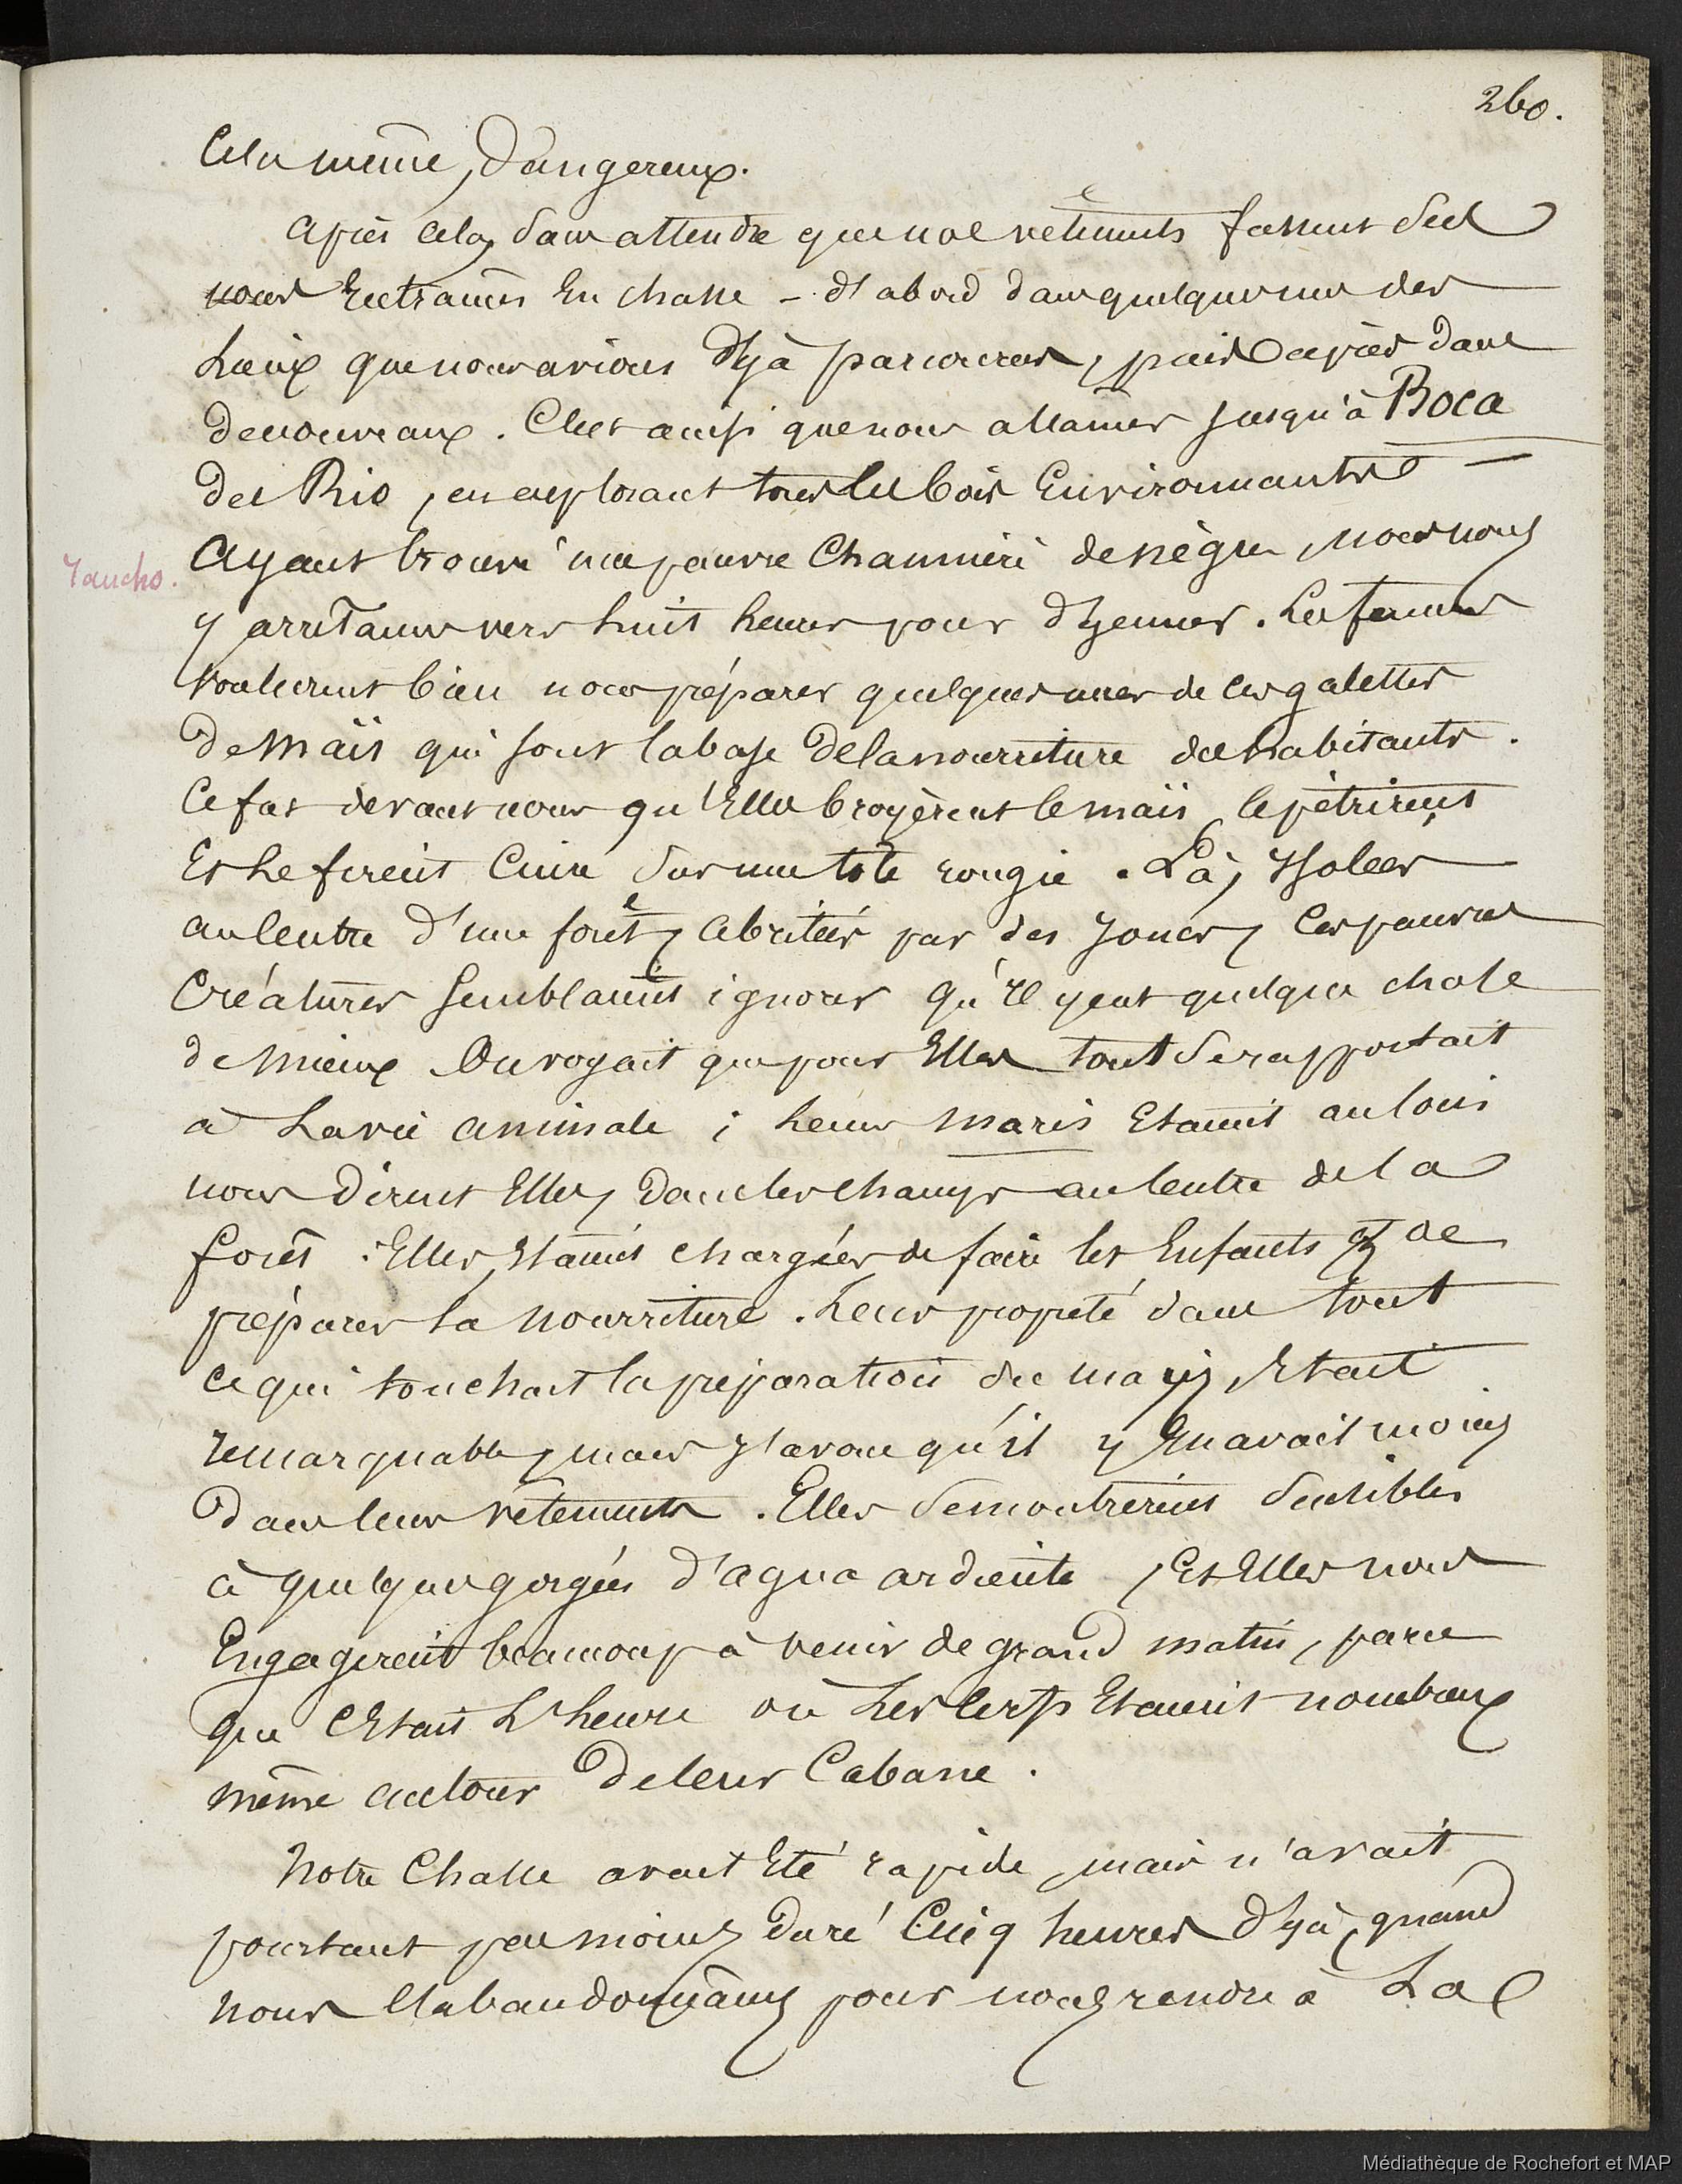 260.
Cela même, dangereux.
Après cela, sans attendre que nos vêtements fussent secs
nous rentrâmes en chasse - d'abord dans quelques uns des
lieux que nous avions déjà parcourus, puis après dans
de nouveaux. C'est ainsi que nous allâmes jusqu'à Boca
del Rio, en explorant tous les bois environnants
Rancho.
Ayant trouvé une pauvre chaumière de nègres, nous nous
y arrêtames vers huit heures pour déjeuner. Les femmes
voulurent bien nous préparer quelques unes de ces galettes
de maïs qui sont la base de la nourriture des habitants.
Ce fut devant nous qu'elles broyèrent le maïs, le pétrirent
et le firent cuire sur une tôle rougie. Là, isolées
au centre d'une forêt, abritées par des joncs, ces pauvres
créatures semblaient ignorer qu'il y eut quelque chose
de mieux. On voyait que pour elles tout se rapportait
à la vie animale ; leurs maris étaient au loin
nous dirent elles, dans les champs au centre de la
forêt. Elles étaient chargées de faire les enfants et de
préparer la nourriture. Leur propreté dans tout
ce qui touchait la préparation du mays, était
remarquable, mais j'avoue qu'il y en avait moins
dans leurs vêtements. Elles se montrèrent sensibles
à quelques gorgées d'agua ardiente, et elles nous
engagèrent beaucoup à venir de grand matin, parce
que c'était l'heure où les cerfs étaient nombreux
même autour de leur cabane.
Notre chasse avait été rapide, mais n'avait
pourtant pas moins duré cinq heures déjà, quand
nous l'abandonnâmes pour nous rendre à la
Médiathèque de Rochefort et MAP